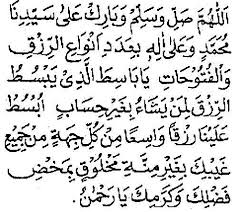 اَللّٰهُمَّ صَلِّ وَسَلِّمْ وَبَارِكْ عَلٰى سَيِّدِنَا
مُحَمَّدٍ وَعَلٰى اٰلِهٖ بِعَدَدِ اَنْوَاعِ الرِّزْقِ
وَالْفُتُوْحَاتِ يَابَاسِطَ الَّذِيْ يَبْسُطُ
الرِّزْقَ لِمَنْ يَشَاءُ بِغَيْرِ حِسَابٍ اُبْسُطْ
عَلَيْنَا رِزْقًا وَاسِعًا مِنْ كُلِّ جِهَةٍ مِنْ جَمِيْعِ
غَيْبِكَ بِغَيْرِ مِنَّةِ مَخْلُوْقٍ بِمَحْضِ
فَضْلِكَ وَكَرَمِكَ يَارَحْمٰنُ.